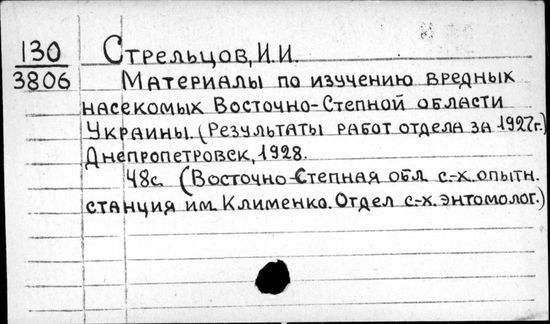 130
3806
Стрельцов, И.И.
Материалы по изучению вредных
насекомых Восточно-Степной области
Украины. (Результаты работ отдела за 1927г.)
Днепропетровск, 1928.
48с. (Восточно-Степная обл. с.-х. опытн.
станция им. Клименко. Отдел с.-х. энтомолог.)